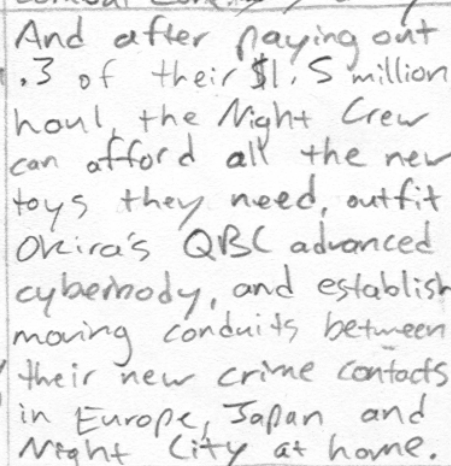 And after paying out
.3 of their $1.5 million
haul, the Night Crew
can afford all the new
toys they need, outfit
Okira's QBC advanced
cyberbody, and establish
moving conduits between
their new crime contacts
in Europe, Japan and
Night City at home.